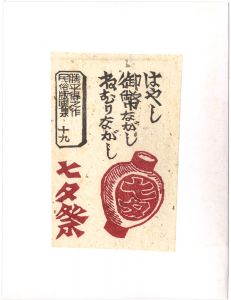 はやし
御幣ながし
ねむりながし
勝平得之作
民俗版画集 十九
七夕祭
七夕